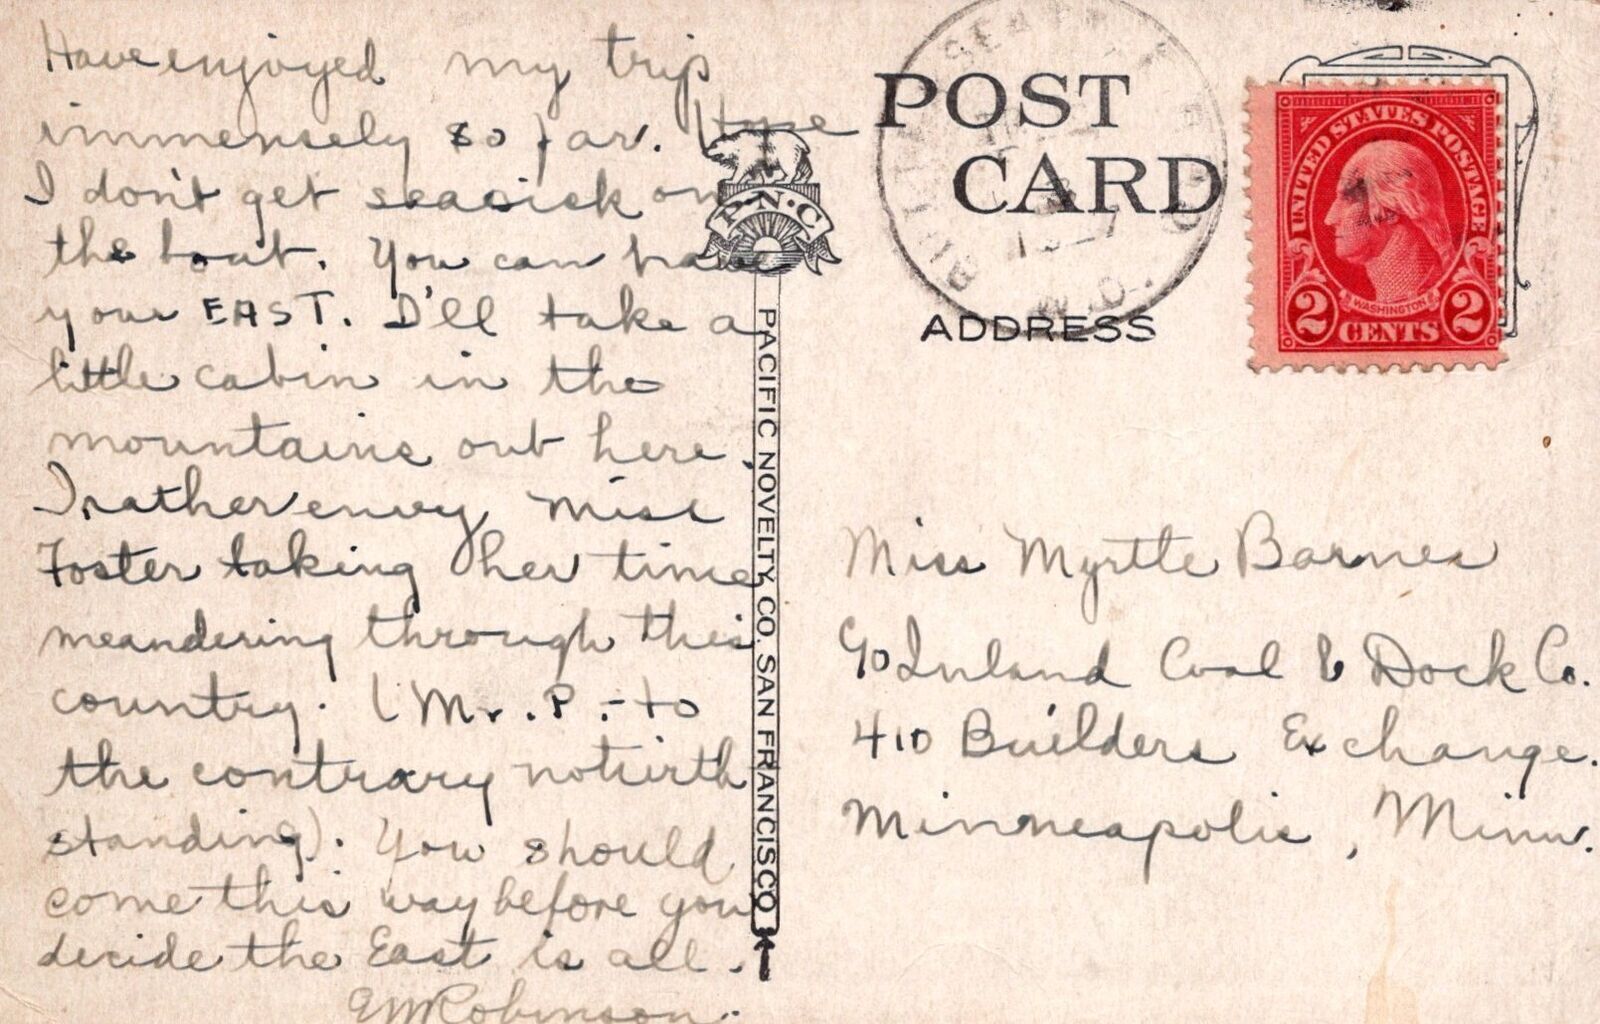 Have enjoyed my trip
immensely so far. Hope
I don't get seasick on
the boat. You can have
your EAST. I'll take a
little cabin in the
mountains out here.
I rather envy Miss
Foster taking her time
meandering through this
country. (Mr. P. - to
the contrary notwith
standing). You should
come this way before you
decide the East is all.
EMRobinson.
P.N.C.
PACIFIC NOVELTY CO. SAN FRANCISCO
POST
CARD
ADDRESS
UNITED STATES POSTAGE
WASHINGTON
2 CENTS 2
Miss Myrtle Barnes
c/o Inland Coal & Dock Co.
410 Builders Exchange.
Minneapolis, Minn.